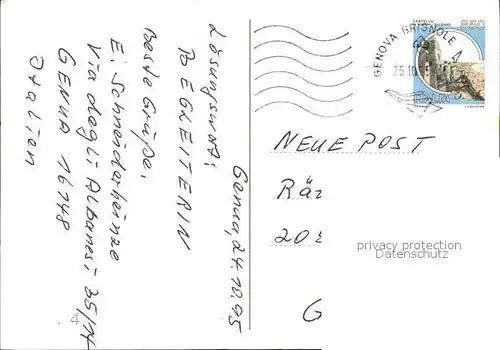 Genua, 24.10.95
Lösungswort:
BEGLEITERIN
Beste Grüße,
E. Schneiderheinze
Via degli Albanesi 25/14
GENUA 16148
Italien
NEUE POST
Rä
20
G
650
CASTELLO
ITALIA
GENOVA BRIGNOLE A
25.10
privacy protection
Datenschutz